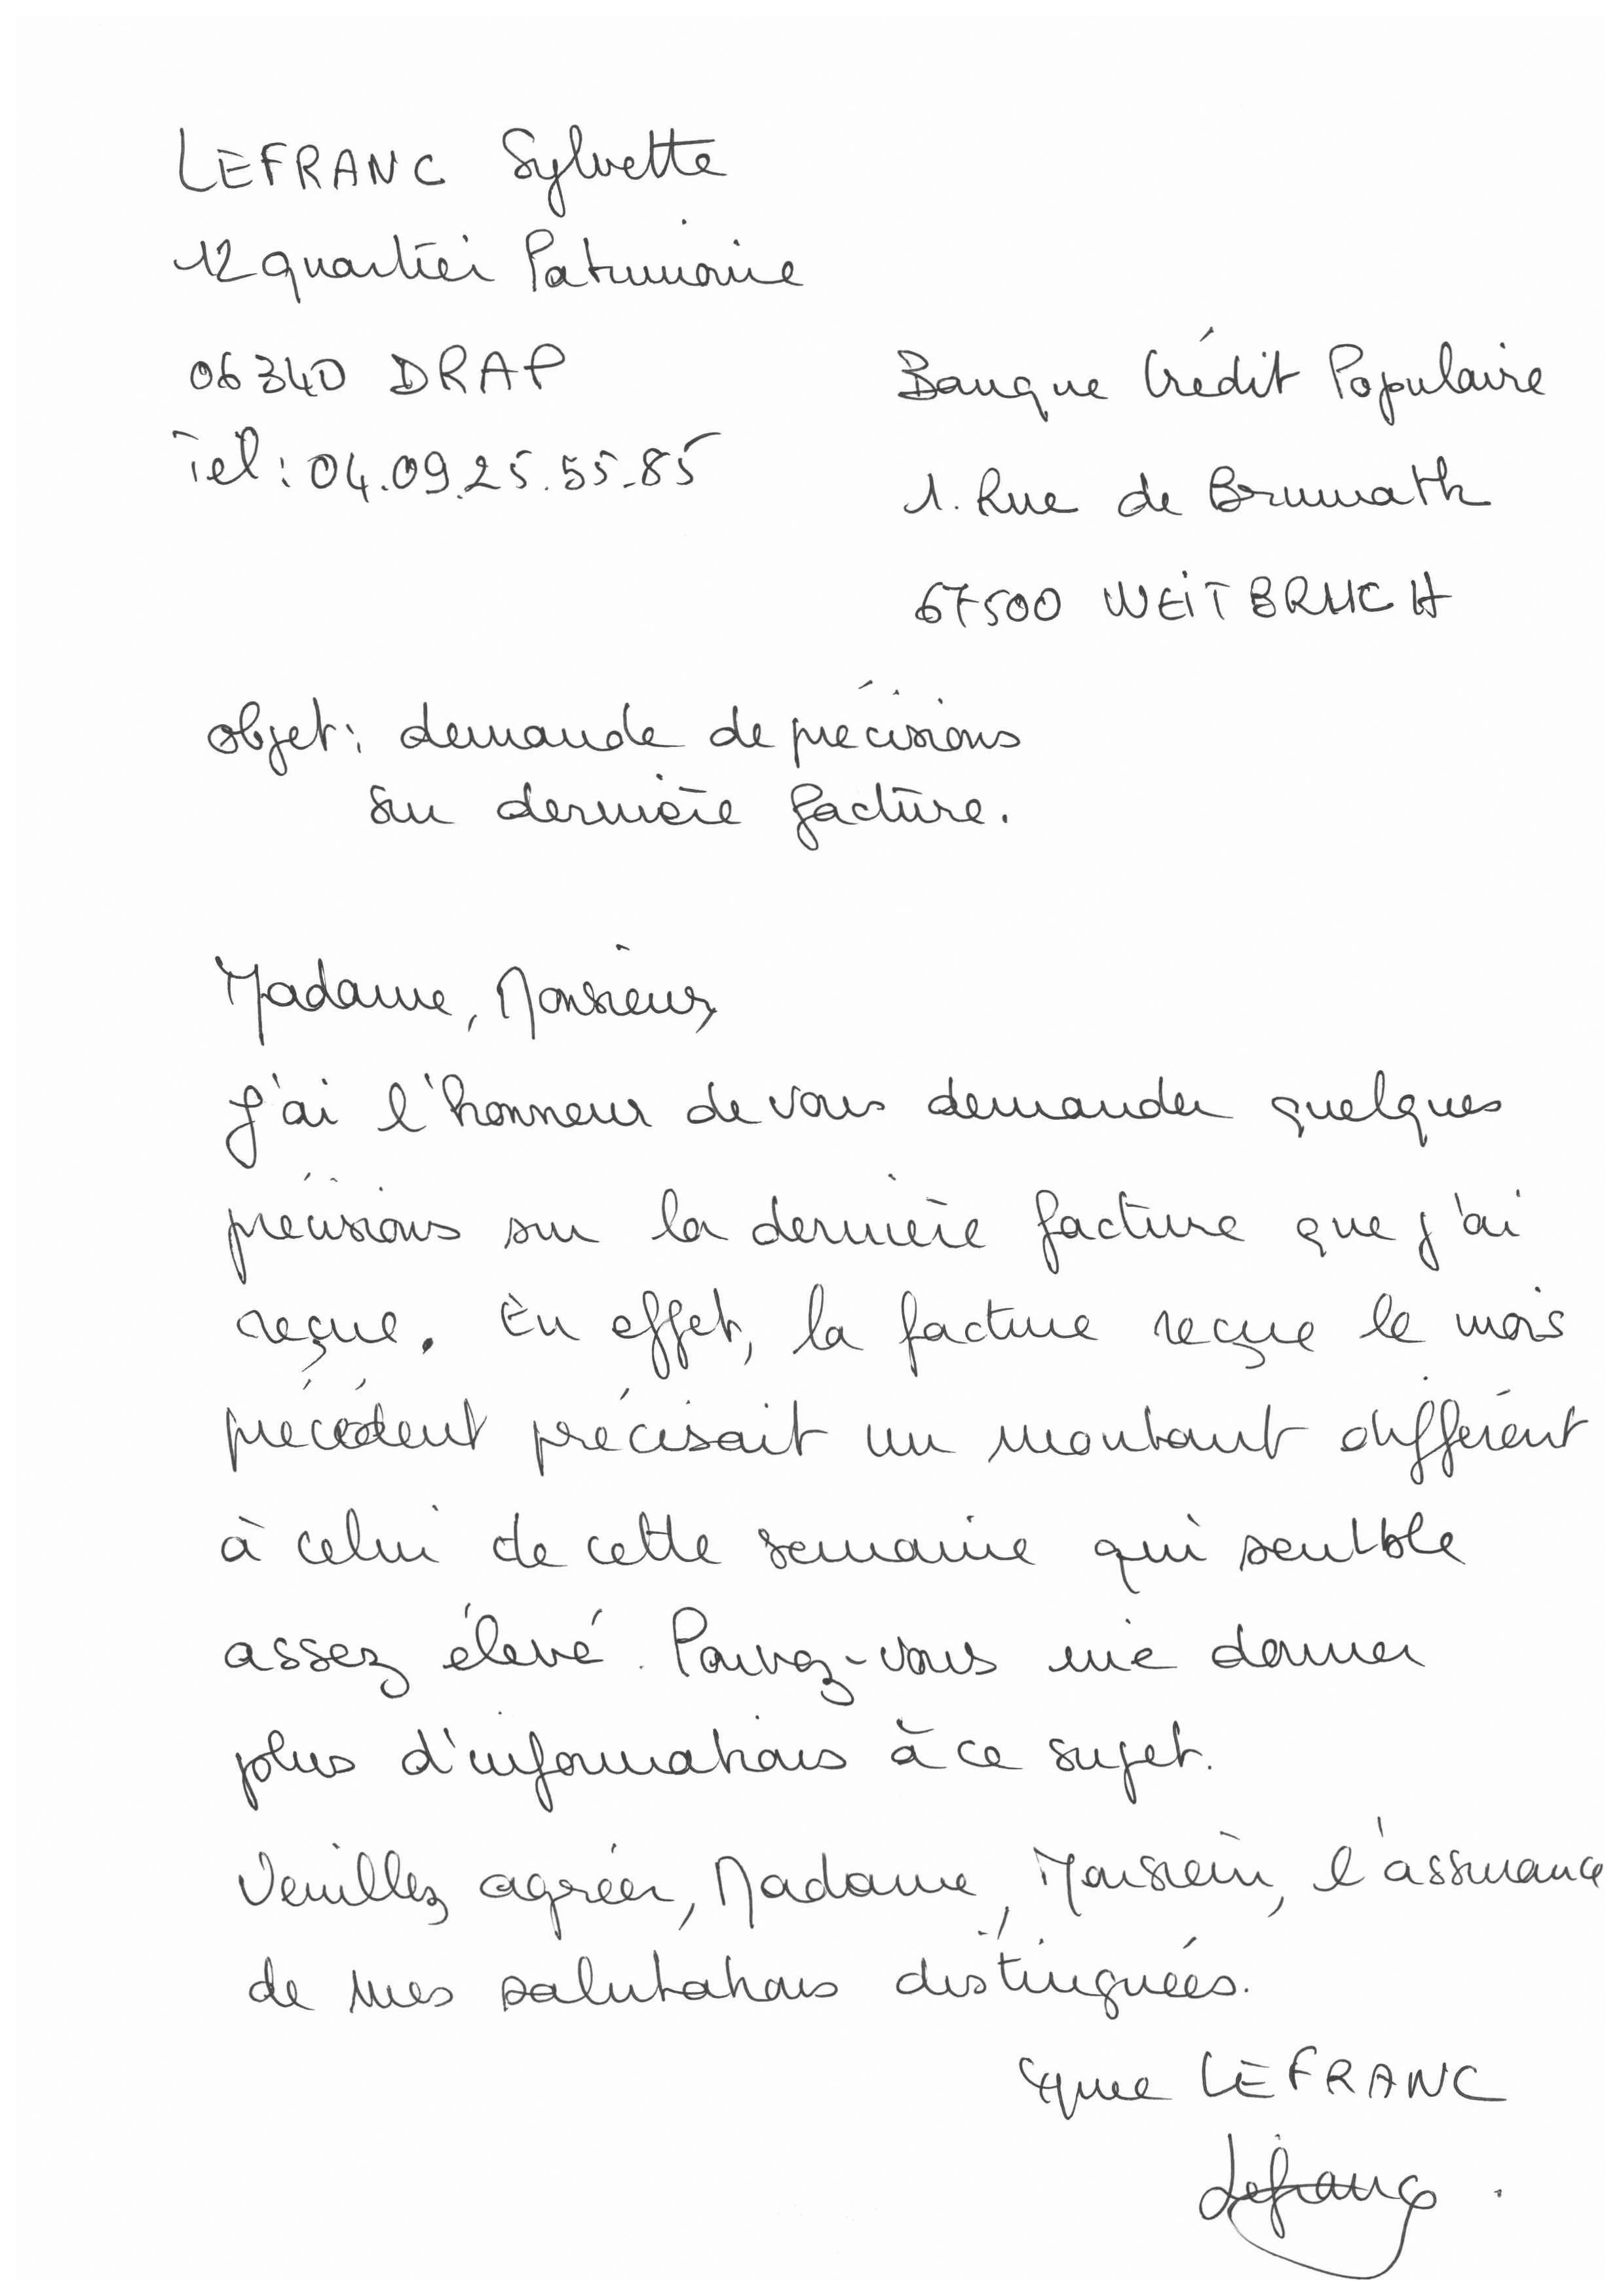 LEFRANC Sylvette
12 quartier Patrimoine
06340 DRAP
Tel : 04.09.25.55.85
Banque Crédit Populaire
1. Rue de Brumath
67500 WEITBRUCH
objet : demande de précisions
sur dernière facture.
Madame, Monsieur,
J'ai l'honneur de vous demander quelques
précisions sur la dernière facture que j'ai
reçue. En effet, la facture reçue le mois
précédent précisait un montant différent
à celui de cette semaine qui semble
assez élevé. Pouvez-vous me donner
plus d'informations à ce sujet.
Veuillez agréer, Madame, Monsieur, l'assurance
de mes salutations distinguées.
Mme LEFRANC
Lefranc